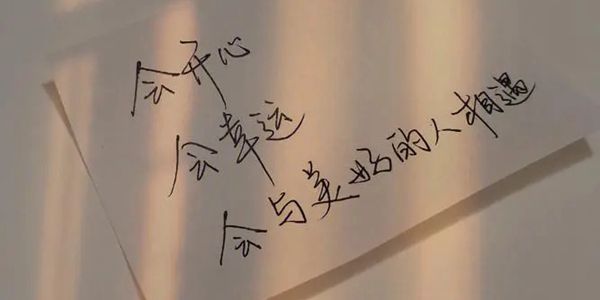 会开心
会幸运
会与美好的人相遇